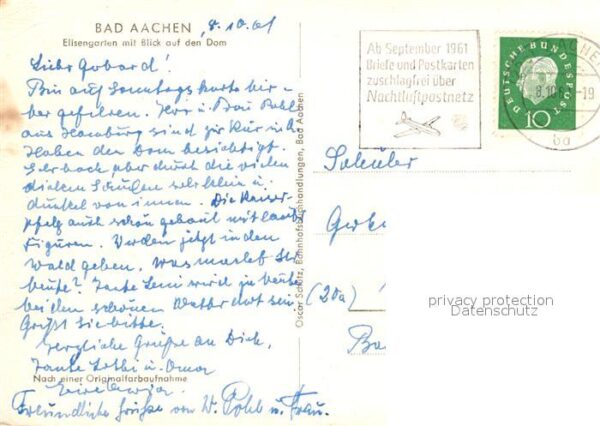 BAD AACHEN 8.10.61
Elisengarten mit Blick auf den Dom
Lieber Gebard!
Bin auf Sonntagskarte hier
her gefahren. Herr u. Frau Pohl
aus Hamburg sind zur Kur hier.
Haben den Dom besichtigt.
aber durch die vielen
dicken Säulen sehr klein u.
dunkel von innen. Die Kaiser-
pfalz auch schön gebaut mit
Figuren. Werden jetzt in den
Wald gehen, was machst du
heute? Tante Leni wird ja heute
bei dem schönen Wetter dort sein
Grüßt sie bitte.
Herzliche Grüße an Dich,
Tante u. Oma
Nach einer Originalfarbaufnahme
Freundliche Grüße von W. Pohl u. Frau.
Oscar Schütz, Bahnhofsbuchhandlungen, Bad Aachen
Ab September 1961
Briefe und Postkarten
zuschlagfrei über
Nachtluftpostnetz
AACHEN
8.10. -19
DEUTSCHE BUNDESPOST
10
Schüler
(20a)
privacy protection
Datenschutz